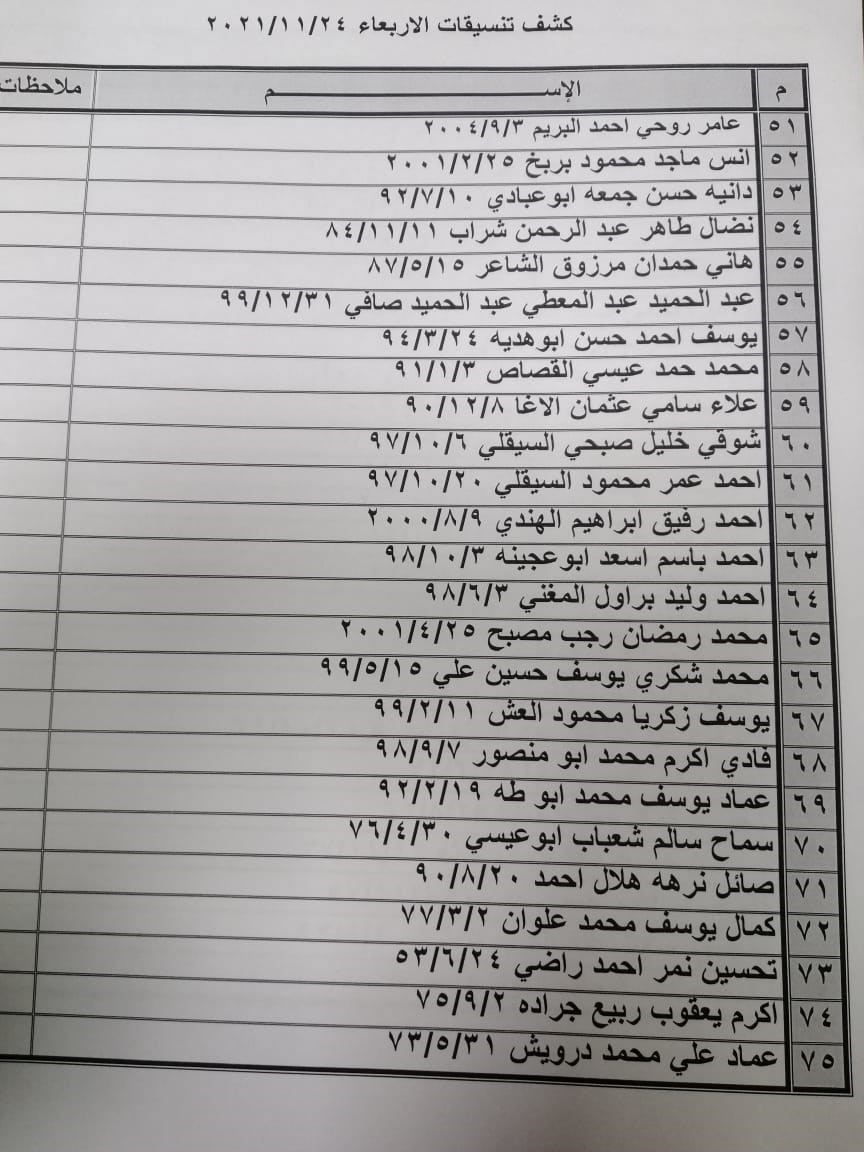 كشف تنسيقات الاربعاء ٢٠٢١/١١/٢٤
م الإســـــــــــــــــــــــــــــــــــــــــم ملاحظات
٥١ عامر روحي احمد البريم ٢٠٠٤/٩/٣
٥٢ انس ماجد محمود بربخ ٢٠٠١/٢/٢٥
٥٣ دانيه حسن جمعه ابوعبادي ٩٢/٧/١٠
٥٤ نضال طاهر عبد الرحمن شراب ٨٤/١١/١١
٥٥ هاني حمدان مرزوق الشاعر ٨٧/٥/١٥
٥٦ عبد الحميد عبد المعطي عبد الحميد صافي ٩٩/١٢/٣١
٥٧ يوسف احمد حسن ابوهديه ٩٤/٣/٢٤
٥٨ محمد حمد عيسي القصاص ٩١/١/٣
٥٩ علاء سامي عثمان الاغا ٩٠/١٢/٨
٦٠ شوقي خليل صبحي السيقلي ٩٧/١٠/٦
٦١ احمد عمر محمود السيقلي ٩٧/١٠/٢٠
٦٢ احمد رفيق ابراهيم الهندي ٢٠٠٠/٨/٩
٦٣ احمد باسم اسعد ابوعجينه ٩٨/١٠/٣
٦٤ احمد وليد براول المغني ٩٨/٦/٣
٦٥ محمد رمضان رجب مصبح ٢٠٠١/٤/٢٥
٦٦ محمد شكري يوسف حسين علي ٩٩/٥/١٥
٦٧ يوسف زكريا محمود العش ٩٩/٢/١١
٦٨ فادي اكرم محمد ابو منصور ٩٨/٩/٧
٦٩ عماد يوسف محمد ابو طه ٩٢/٢/١٩
٧٠ سماح سالم شعباب ابوعيسي ٧٦/٤/٣٠
٧١ صائل نرهه هلال احمد ٩٠/٨/٢٠
٧٢ كمال يوسف محمد علوان ٧٧/٣/٢
٧٣ تحسين نمر احمد راضي ٥٣/٦/٢٤
٧٤ اكرم يعقوب ربيع جراده ٧٥/٩/٢
٧٥ عماد علي محمد درويش ٧٣/٥/٣١